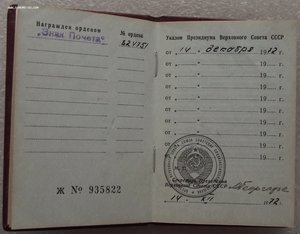 Награжден орденом
№ ордена
„Знак Почета“
Ж № 935822
Указом Президиума Верховного Совета СССР
от „14“ декабря 1972
от „ “ 19 г.
от „ “ 19 г.
от „ “ 19 г.
от „ “ 19 г.
от „ “ 19 г.
от „ “ 19 г.
от „ “ 19 г.
Секретарь Президиума
Верховного Совета СССР
14 XII 72